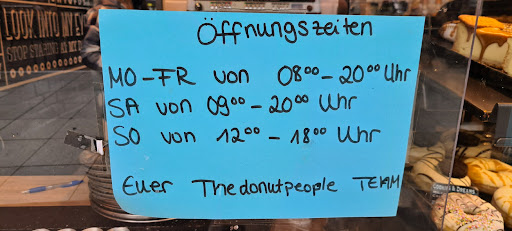 LOOK INTO MY EY
STOP STARING AT MY
Öffnungszeiten
MO-FR von 08⁰⁰-20⁰⁰ Uhr
SA von 09⁰⁰-20⁰⁰ Uhr
SO von 12⁰⁰-18⁰⁰ Uhr
Euer Thedonutpeople TEAM
COOKIES & DREAMS